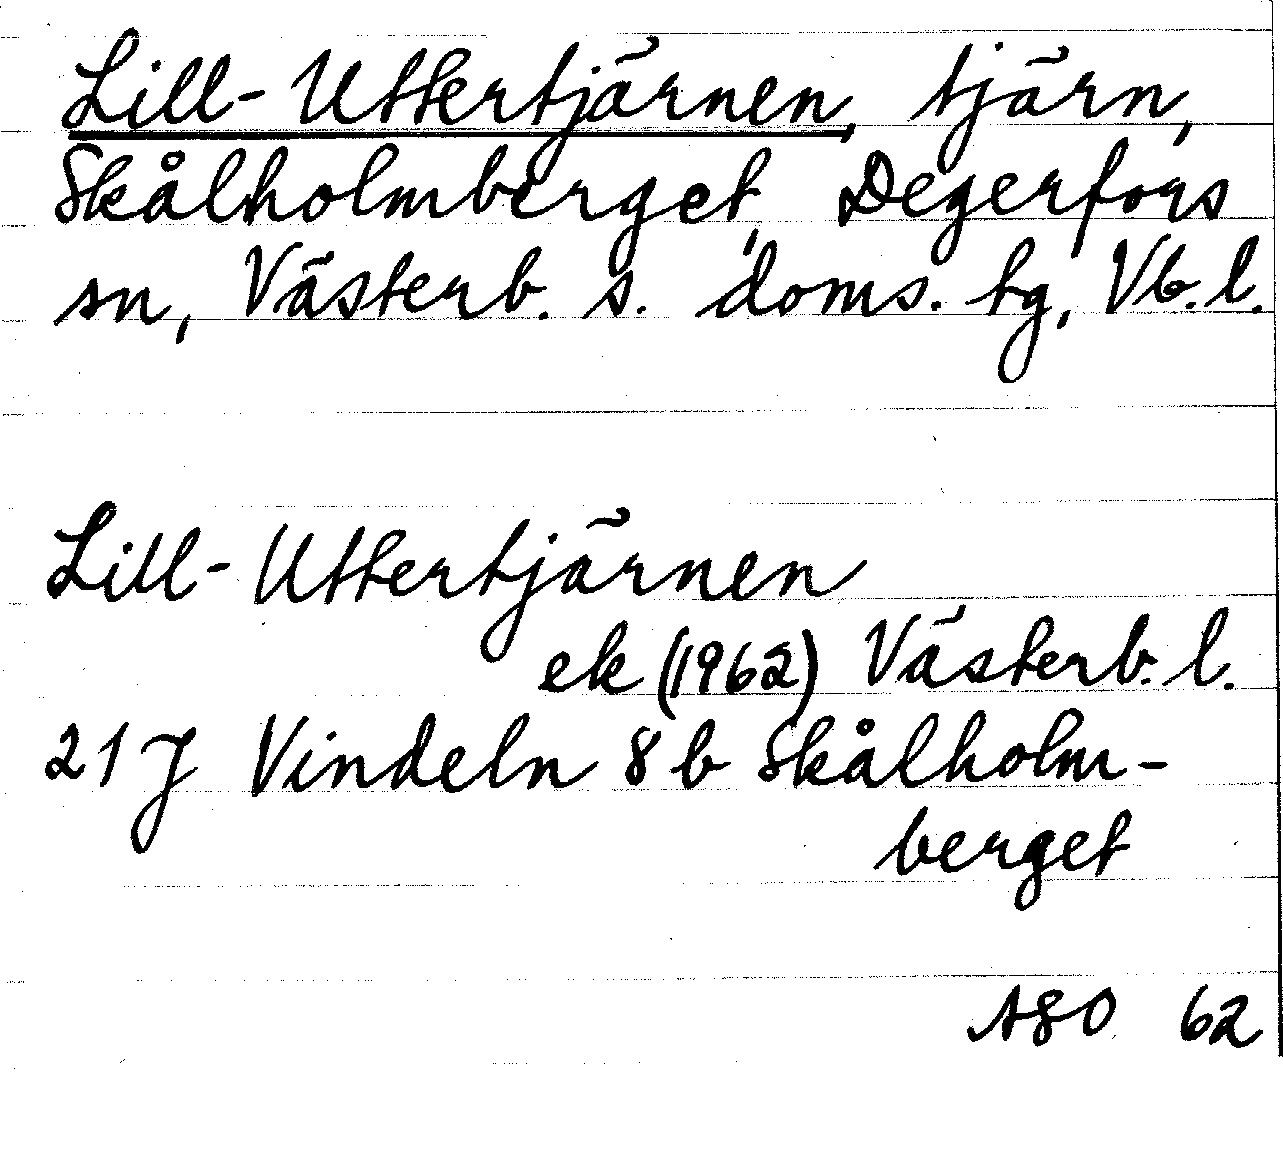 Lill-Uttertjärnen, tjärn,
Skålholmberget, Degerfors
sn, Västerb. s. doms. tg, Vb. l.
Lill-Uttertjärnen
ek (1962) Västerb. l.
21 J Vindeln 8 b Skålholm-
berget
ASO 62